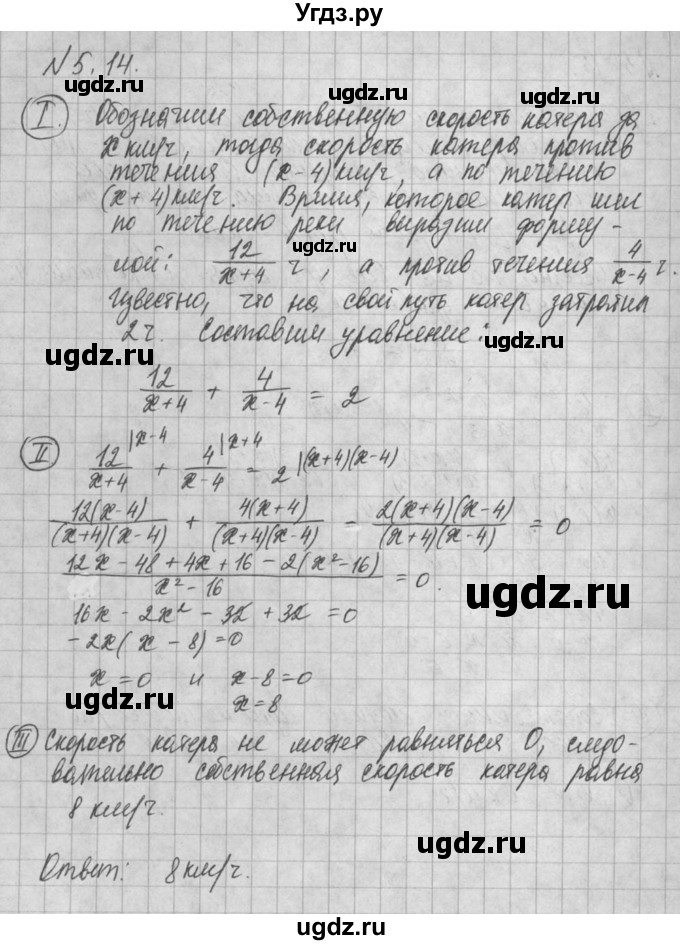 Угдз.ру
N 5.14.
I. Обозначим собственную скорость катера за
x км/ч, тогда скорость катера против
течения (x-4) км/ч, а по течению
(x+4) км/ч. Время, которое катер шёл
по течению реки выразим форму-
лой: 12/(x+4) ч, а против течения 4/(x-4) ч.
Известно, что на свой путь катер затратил
2 ч. Составим уравнение:
12/(x+4) + 4/(x-4) = 2
II 12/(x+4) |x-4 + 4/(x-4) |x+4 = 2 |(x+4)(x-4)
12(x-4)/((x+4)(x-4)) + 4(x+4)/((x+4)(x-4)) = 2(x+4)(x-4)/((x+4)(x-4)) = 0
(12x - 48 + 4x + 16 - 2(x²-16))/(x²-16) = 0.
16x - 2x² - 32 + 32 = 0
-2x(x-8)=0
x=0 и x-8=0
x=8
III Скорость катера не может равняться 0, следо-
вательно собственная скорость катера равна
8 км/ч.
Ответ: 8 км/ч.
ugdz.ru
ugdz.ru
ugdz.ru
ugdz.ru
ugdz.ru
ugdz.ru
ugdz.ru
ugdz.ru
ugdz.ru
ugdz.ru
ugdz.ru
ugdz.ru
ugdz.ru
ugdz.ru